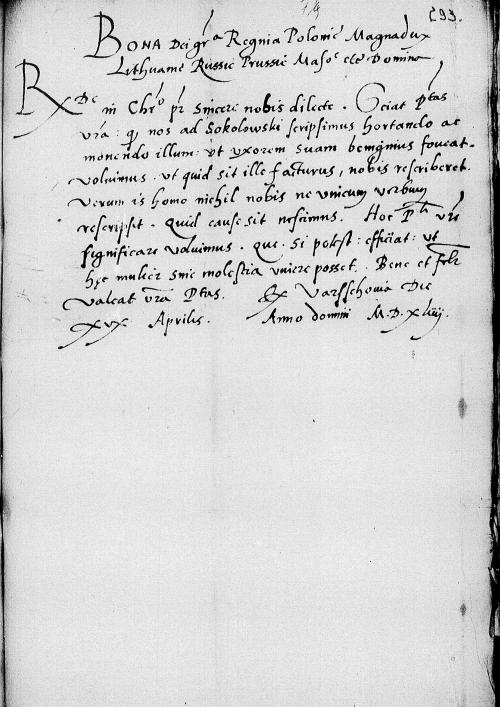 293.
BONA Dei gr̃a Regina Polonie Magnadux
Lithuanie Russie Prussie Maso͠e etc Domina
Rx͠de in Chr͠o p͠r sincere nobis dilecte. Sciat P͠tas
vr̃a: q͠ nos ad Sokolowski scripsimus hortando ac
monendo illum: vt vxorem suam benignius foveat.
voluimus. vt quid sit ille facturus, nobis rescriberet.
Verum is homo nichil nobis ne vnicum verbum
rescripsit. Quid cause sit nescimus. Hoc P͠ti vr̃e
significare voluimus. que. si potest: efficiat: vt
hęc mulier sine molestia viuere posset. Bene et fel͠r
valeat vr̃a P͠tas. Ex Varsschouia Die
xvx Aprilis. Anno domini M.D.xliiij.